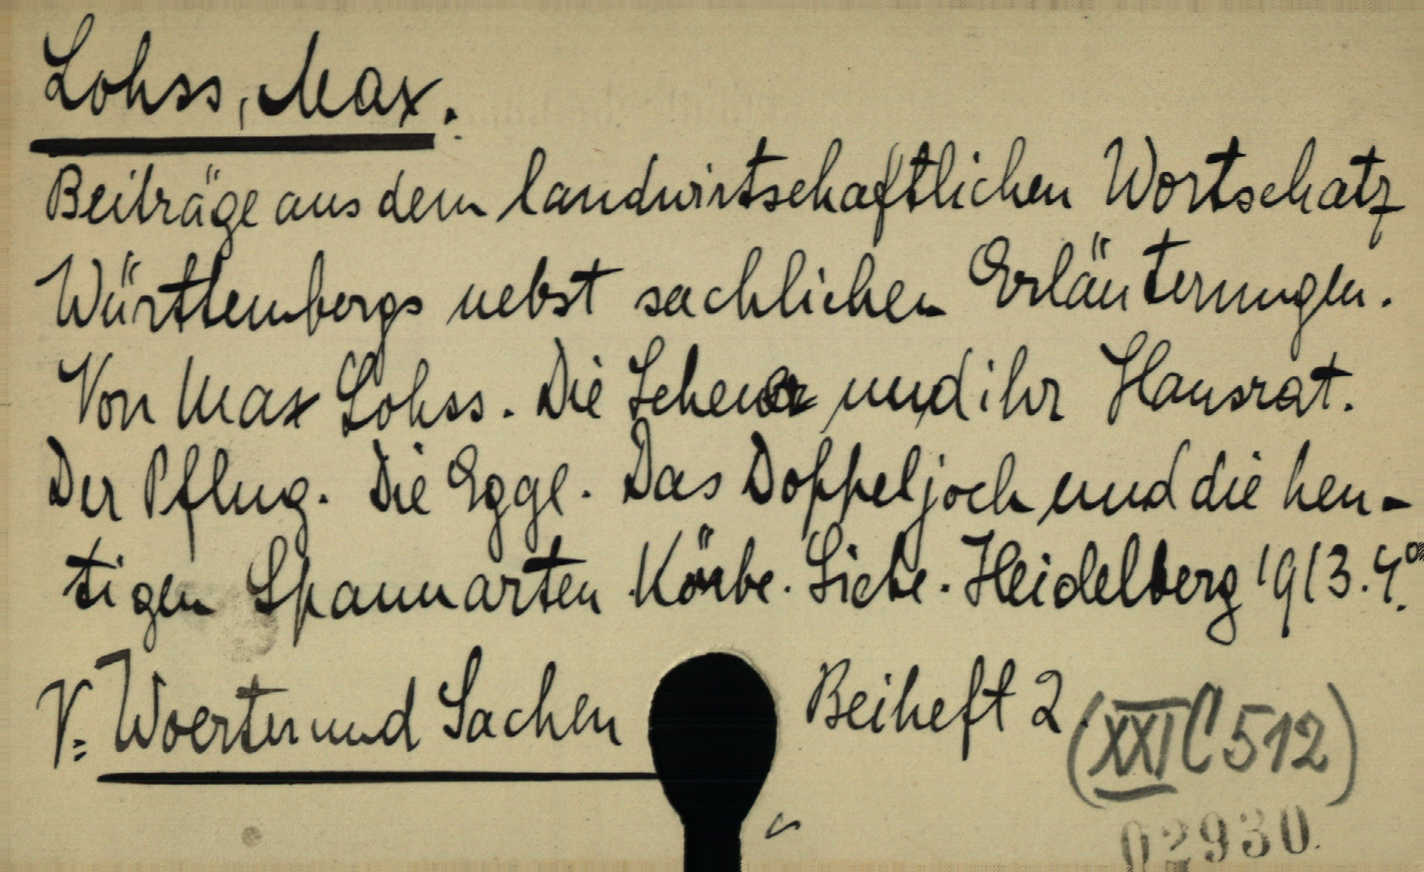 Lohss, Max.
Beiträge aus dem landwirtschaftlichen Wortschatz
Württembergs nebst sachlichen Erläuterungen.
Von Max Lohss. Die Scheuer und ihr Hausrat.
Der Pflug. Die Egge. Das Doppeljoch und die heu-
tigen Spannarten. Körbe. Siebe. Heidelberg 1913. 4°.
V: Woerter und Sachen Beiheft 2.
(XXI C 512)
02930.